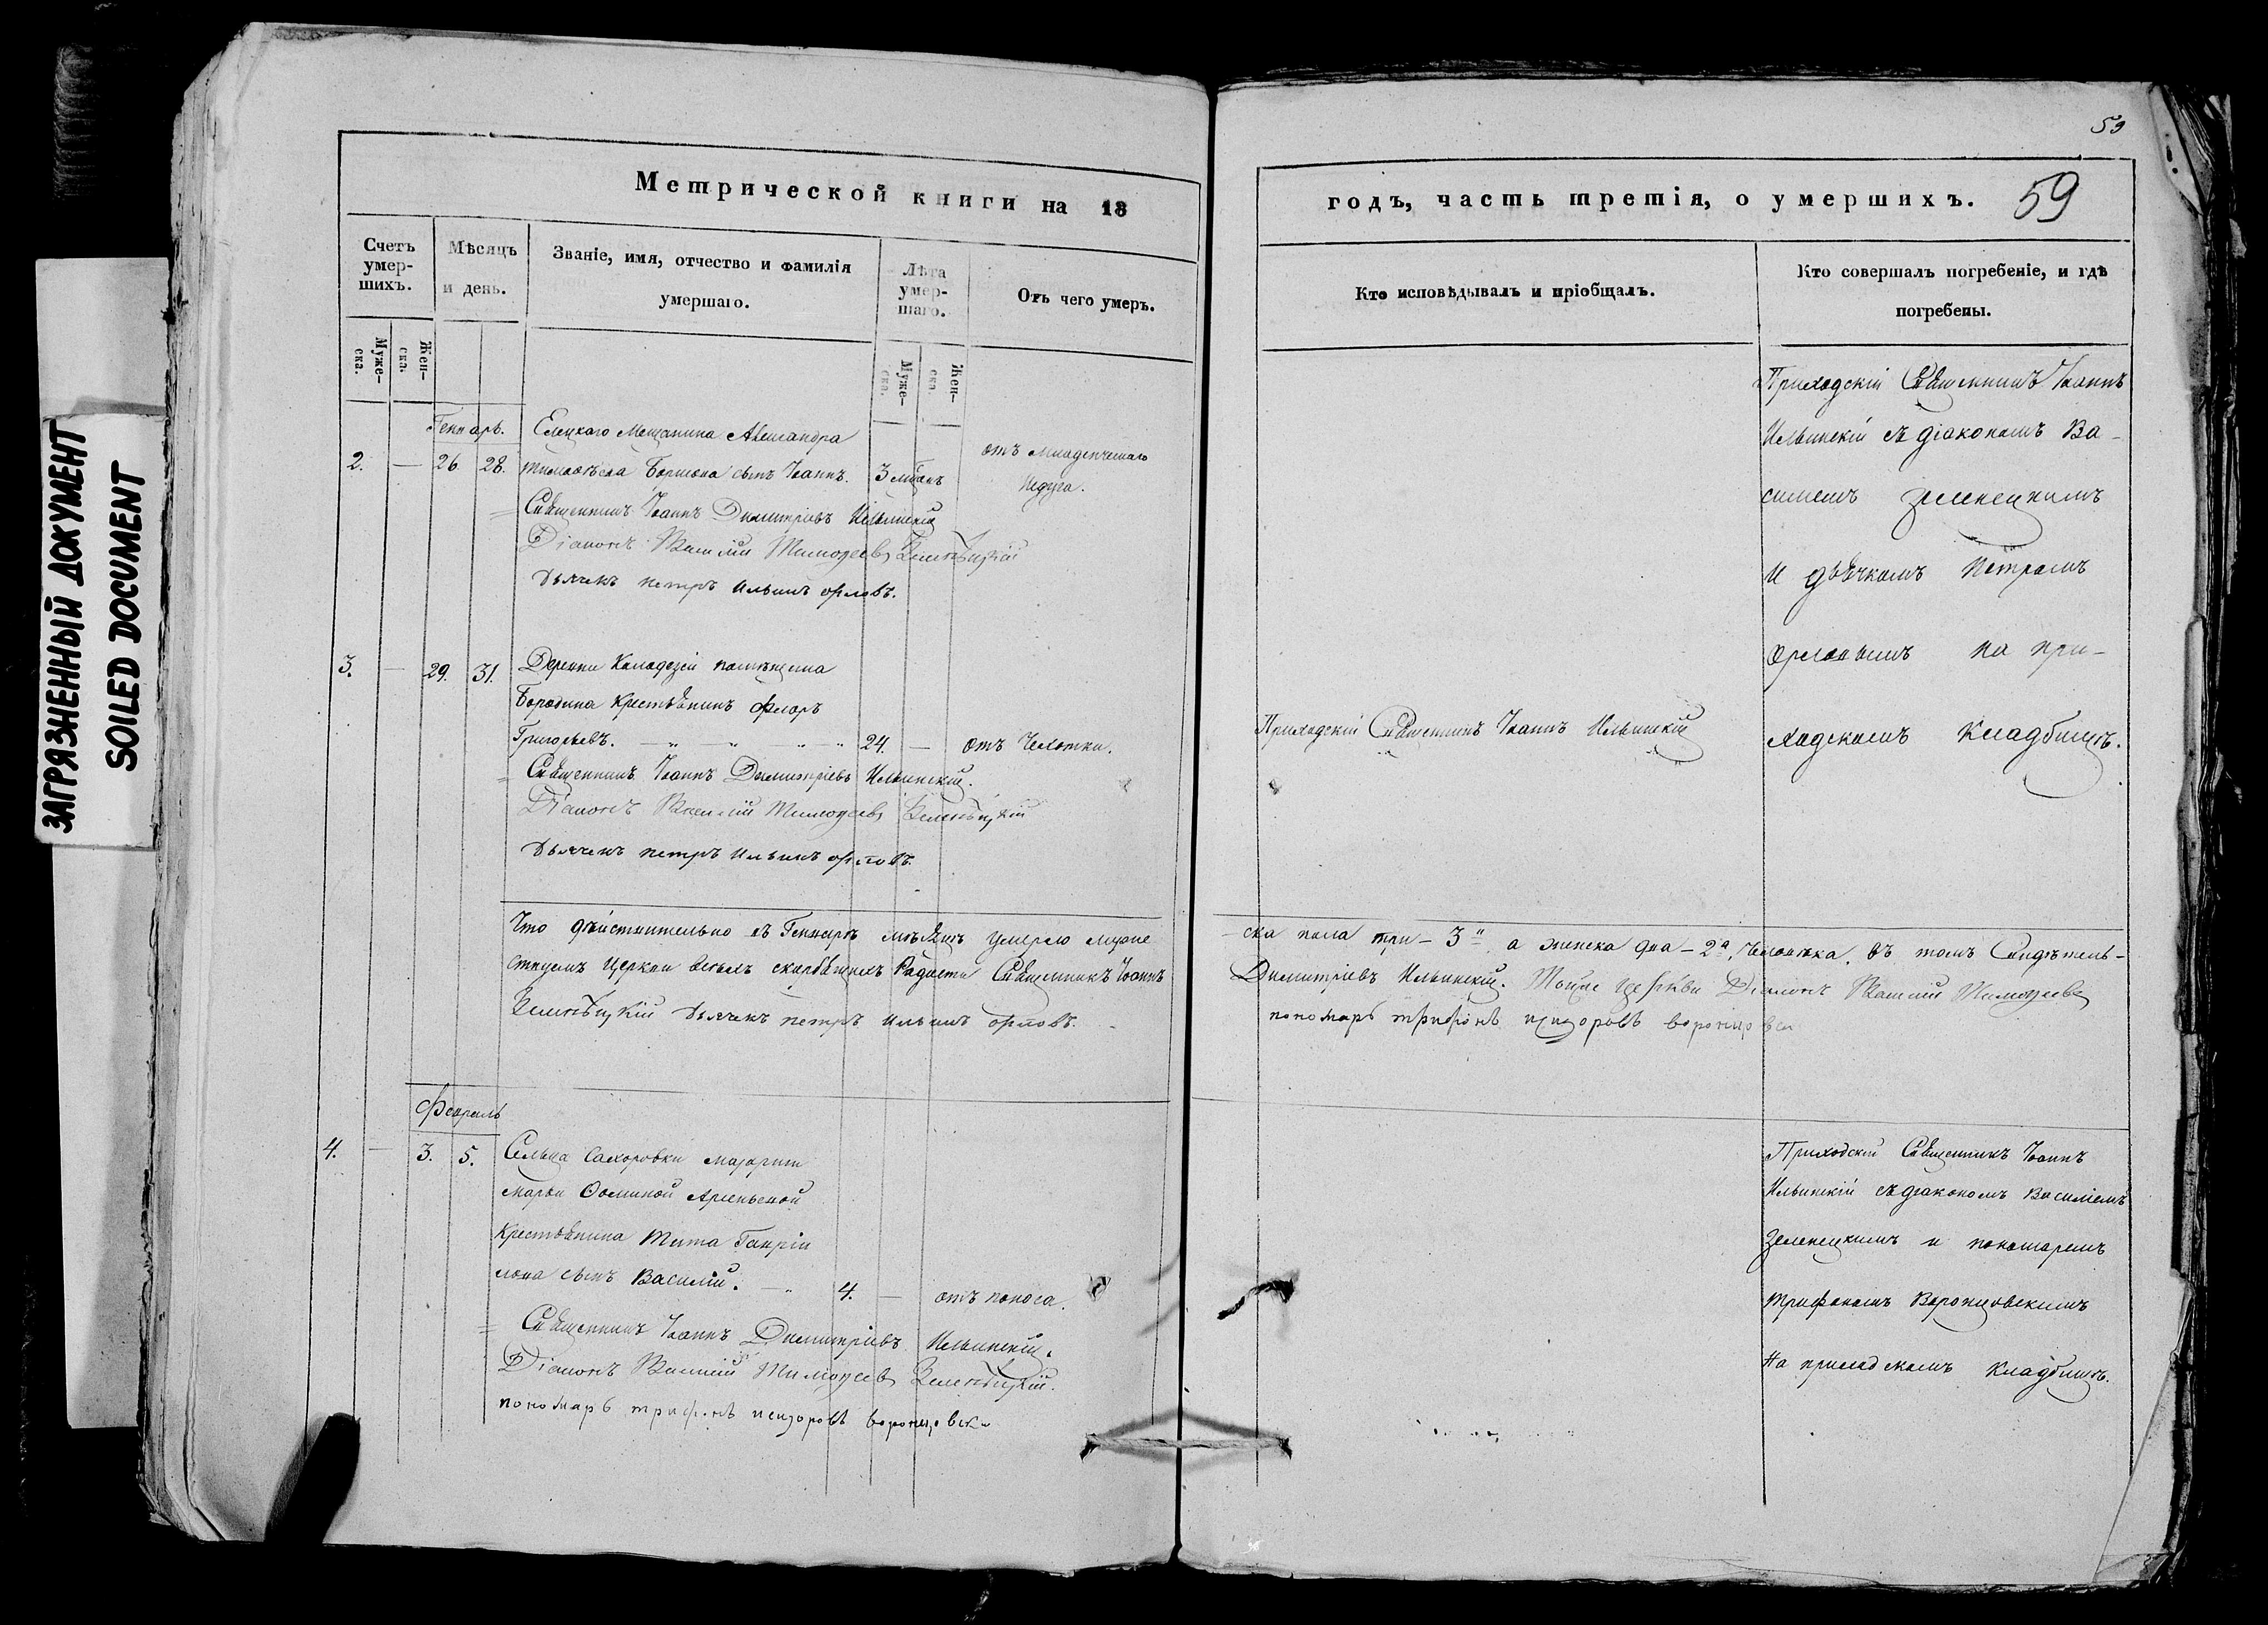 ЗАГРЯЗНЕННЫЙ ДОКУМЕНТ
SOILED DOCUMENT
Метрической книги на 18
Счетъ умер-шихъ.
Муже-ска.
Жен-ска.
Мѣсяцъ и день.
Званіе, имя, отчество и фамилія умершаго.
Лѣта умер-шаго.
Муже-ска.
Жен-ска.
Отъ чего умеръ.
Генварь.
2. — 26. 28.
Елецкаго Мещанина Александра
сынъ Іоаннъ.
отъ младенческаго
недуга.
Священникъ Іоаннъ Димитріевъ Ильинскій
Діаконъ Василій Тимоѳеевъ Зеленѣцкій
Дьячекъ петръ Ильинъ орловъ.
3. — 29. 31.
Деревни Колодезей помѣщика
Бородина крестьянинъ Флоръ
Григорьевъ. 24. — отъ Чехотки.
Священникъ Іоаннъ Димитріевъ Ильинскій.
Діаконъ Василій Тимоѳеевъ Зеленѣцкій
Дьячекъ петръ Ильинъ орловъ.
Что дѣйствительно въ Генварѣ мѣсяцѣ умерло муже
ствуемъ Церкви всѣхъ скорбящихъ Радости Священникъ Іоаннъ
Зеленѣцкій Дьячекъ петръ Ильинъ орловъ.
Февраль
4. — 3. 5.
Сельца Сахоровки
Марьи Ѳоминой Арсеньевой
крестьянина Тита Гаврі
лова сынъ Василій. 4. — отъ поноса.
Священникъ Іоаннъ Димитріевъ Ильинскій.
Діаконъ Василій Тимоѳеевъ Зеленѣцкій.
пономарь трифонъ исидоровъ воронцовски
59
годъ, часть третія, о умершихъ. 59
Кто исповѣдывалъ и пріобщалъ.
Кто совершалъ погребеніе, и гдѣ погребены.
Приходскій Священникъ Іоаннъ
Ильинскій съ діакономъ Ва-
силіемъ Зеленецкимъ
и дьячкомъ Петромъ
Орловымъ на при-
ходскомъ Кладбищѣ.
Приходскій Священникъ Іоаннъ Ильинскій
ска пола три – 3, а женска два – 2а, человѣка. въ томъ Свидѣтель-
Димитріевъ Ильинскій. Тойже Церкви Діаконъ Василій Тимоѳеевъ
пономарь трифонъ исидоровъ воронцовски
Приходскій Священникъ Іоаннъ
Ильинскій съ діакономъ Василіемъ
Зеленецкимъ и пономаремъ
Трифономъ Воронцовскимъ
На приходскомъ кладбищѣ.